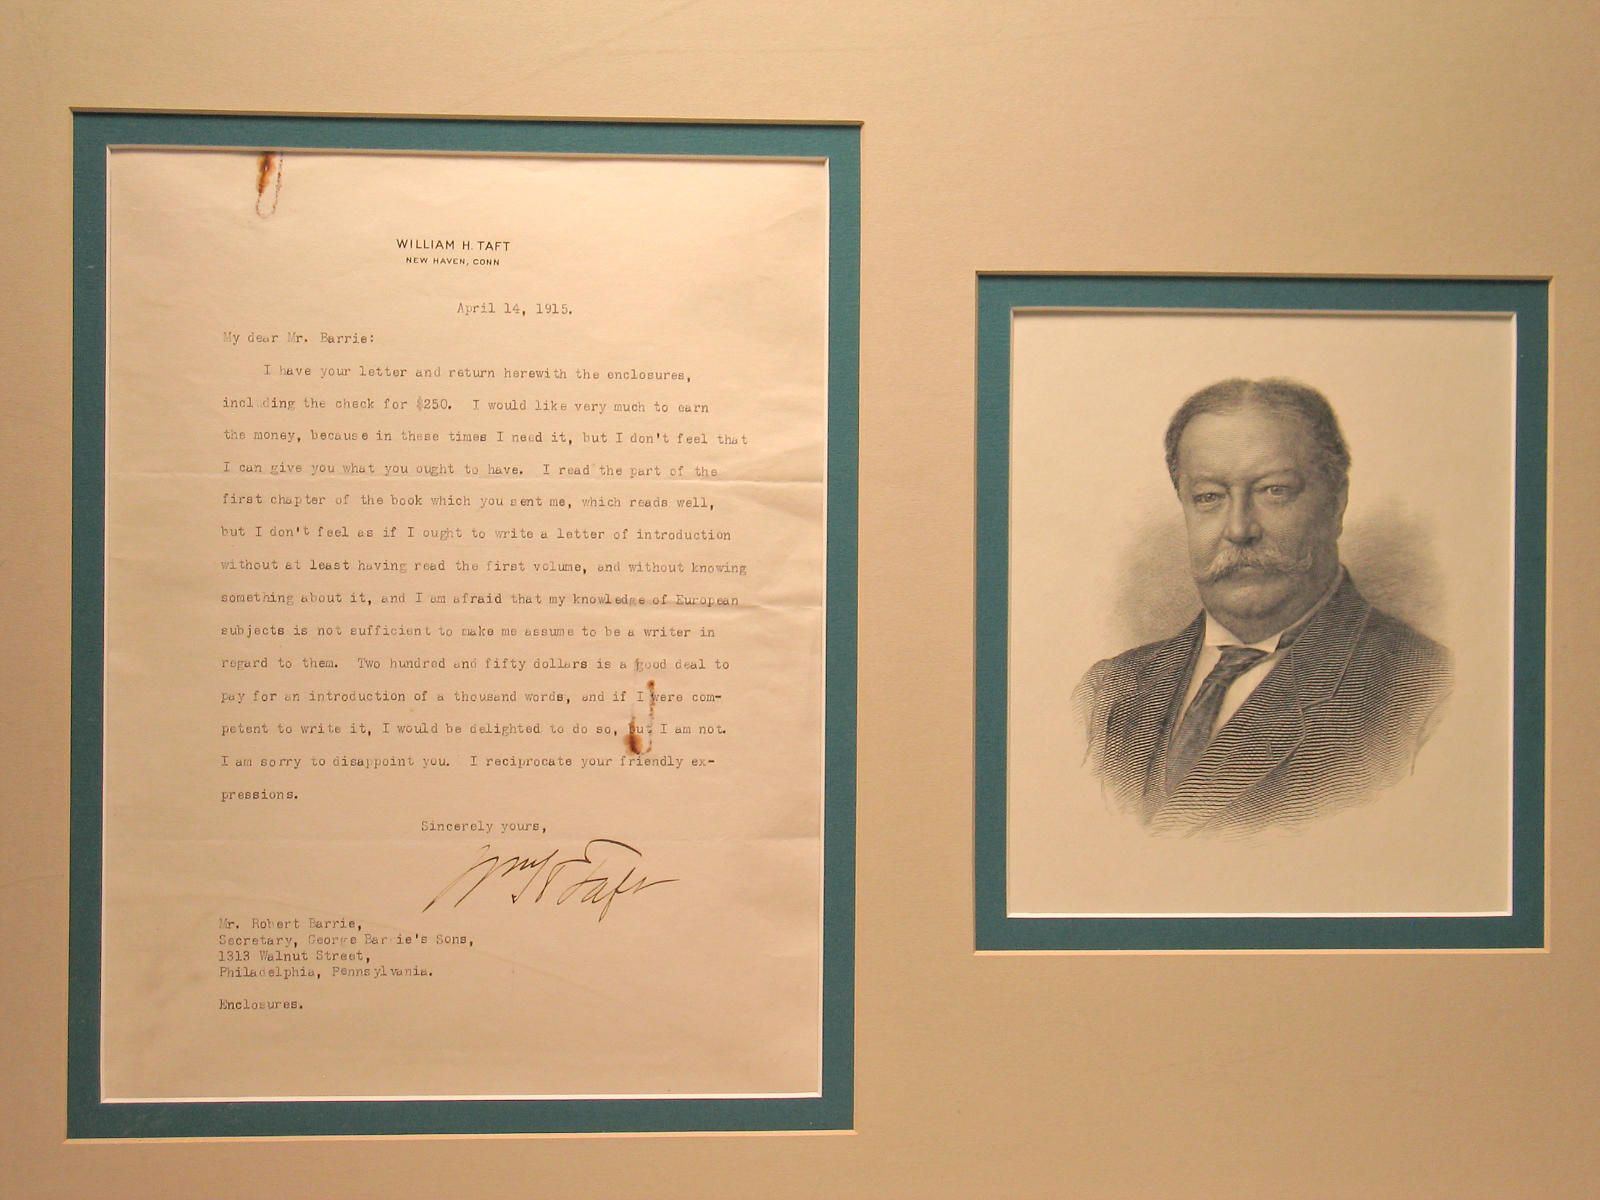 WILLIAM H. TAFT
NEW HAVEN, CONN
April 14, 1915.
My dear Mr. Barrie:
I have your letter and return herewith the enclosures,
including the check for $250. I would like very much to earn
the money, because in these times I need it, but I don't feel that
I can give you what you ought to have. I read the part of the
first chapter of the book which you sent me, which reads well,
but I don't feel as if I ought to write a letter of introduction
without at least having read the first volume, and without knowing
something about it, and I am afraid that my knowledge of European
subjects is not sufficient to make me assume to be a writer in
regard to them. Two hundred and fifty dollars is a good deal to
pay for an introduction of a thousand words, and if I were com-
petent to write it, I would be delighted to do so, but I am not.
I am sorry to disappoint you. I reciprocate your friendly ex-
pressions.
Sincerely yours,
Wm H Taft
Mr. Robert Barrie,
Secretary, George Barrie's Sons,
1313 Walnut Street,
Philadelphia, Pennsylvania.
Enclosures.